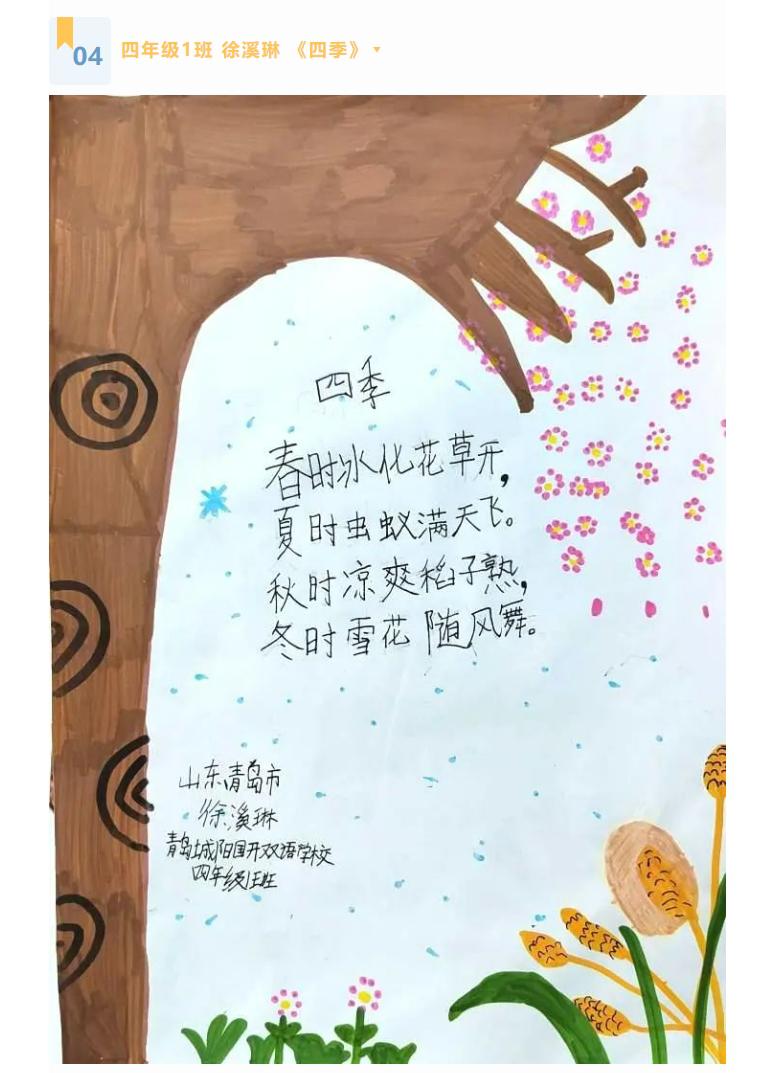 04
四年级1班 徐溪琳 《四季》
四季
春时冰化花草开，
夏时虫蚁满天飞。
秋时凉爽稻子熟，
冬时雪花随风舞。
山东青岛市
徐溪琳
青岛城阳国开双语学校
四年级1班